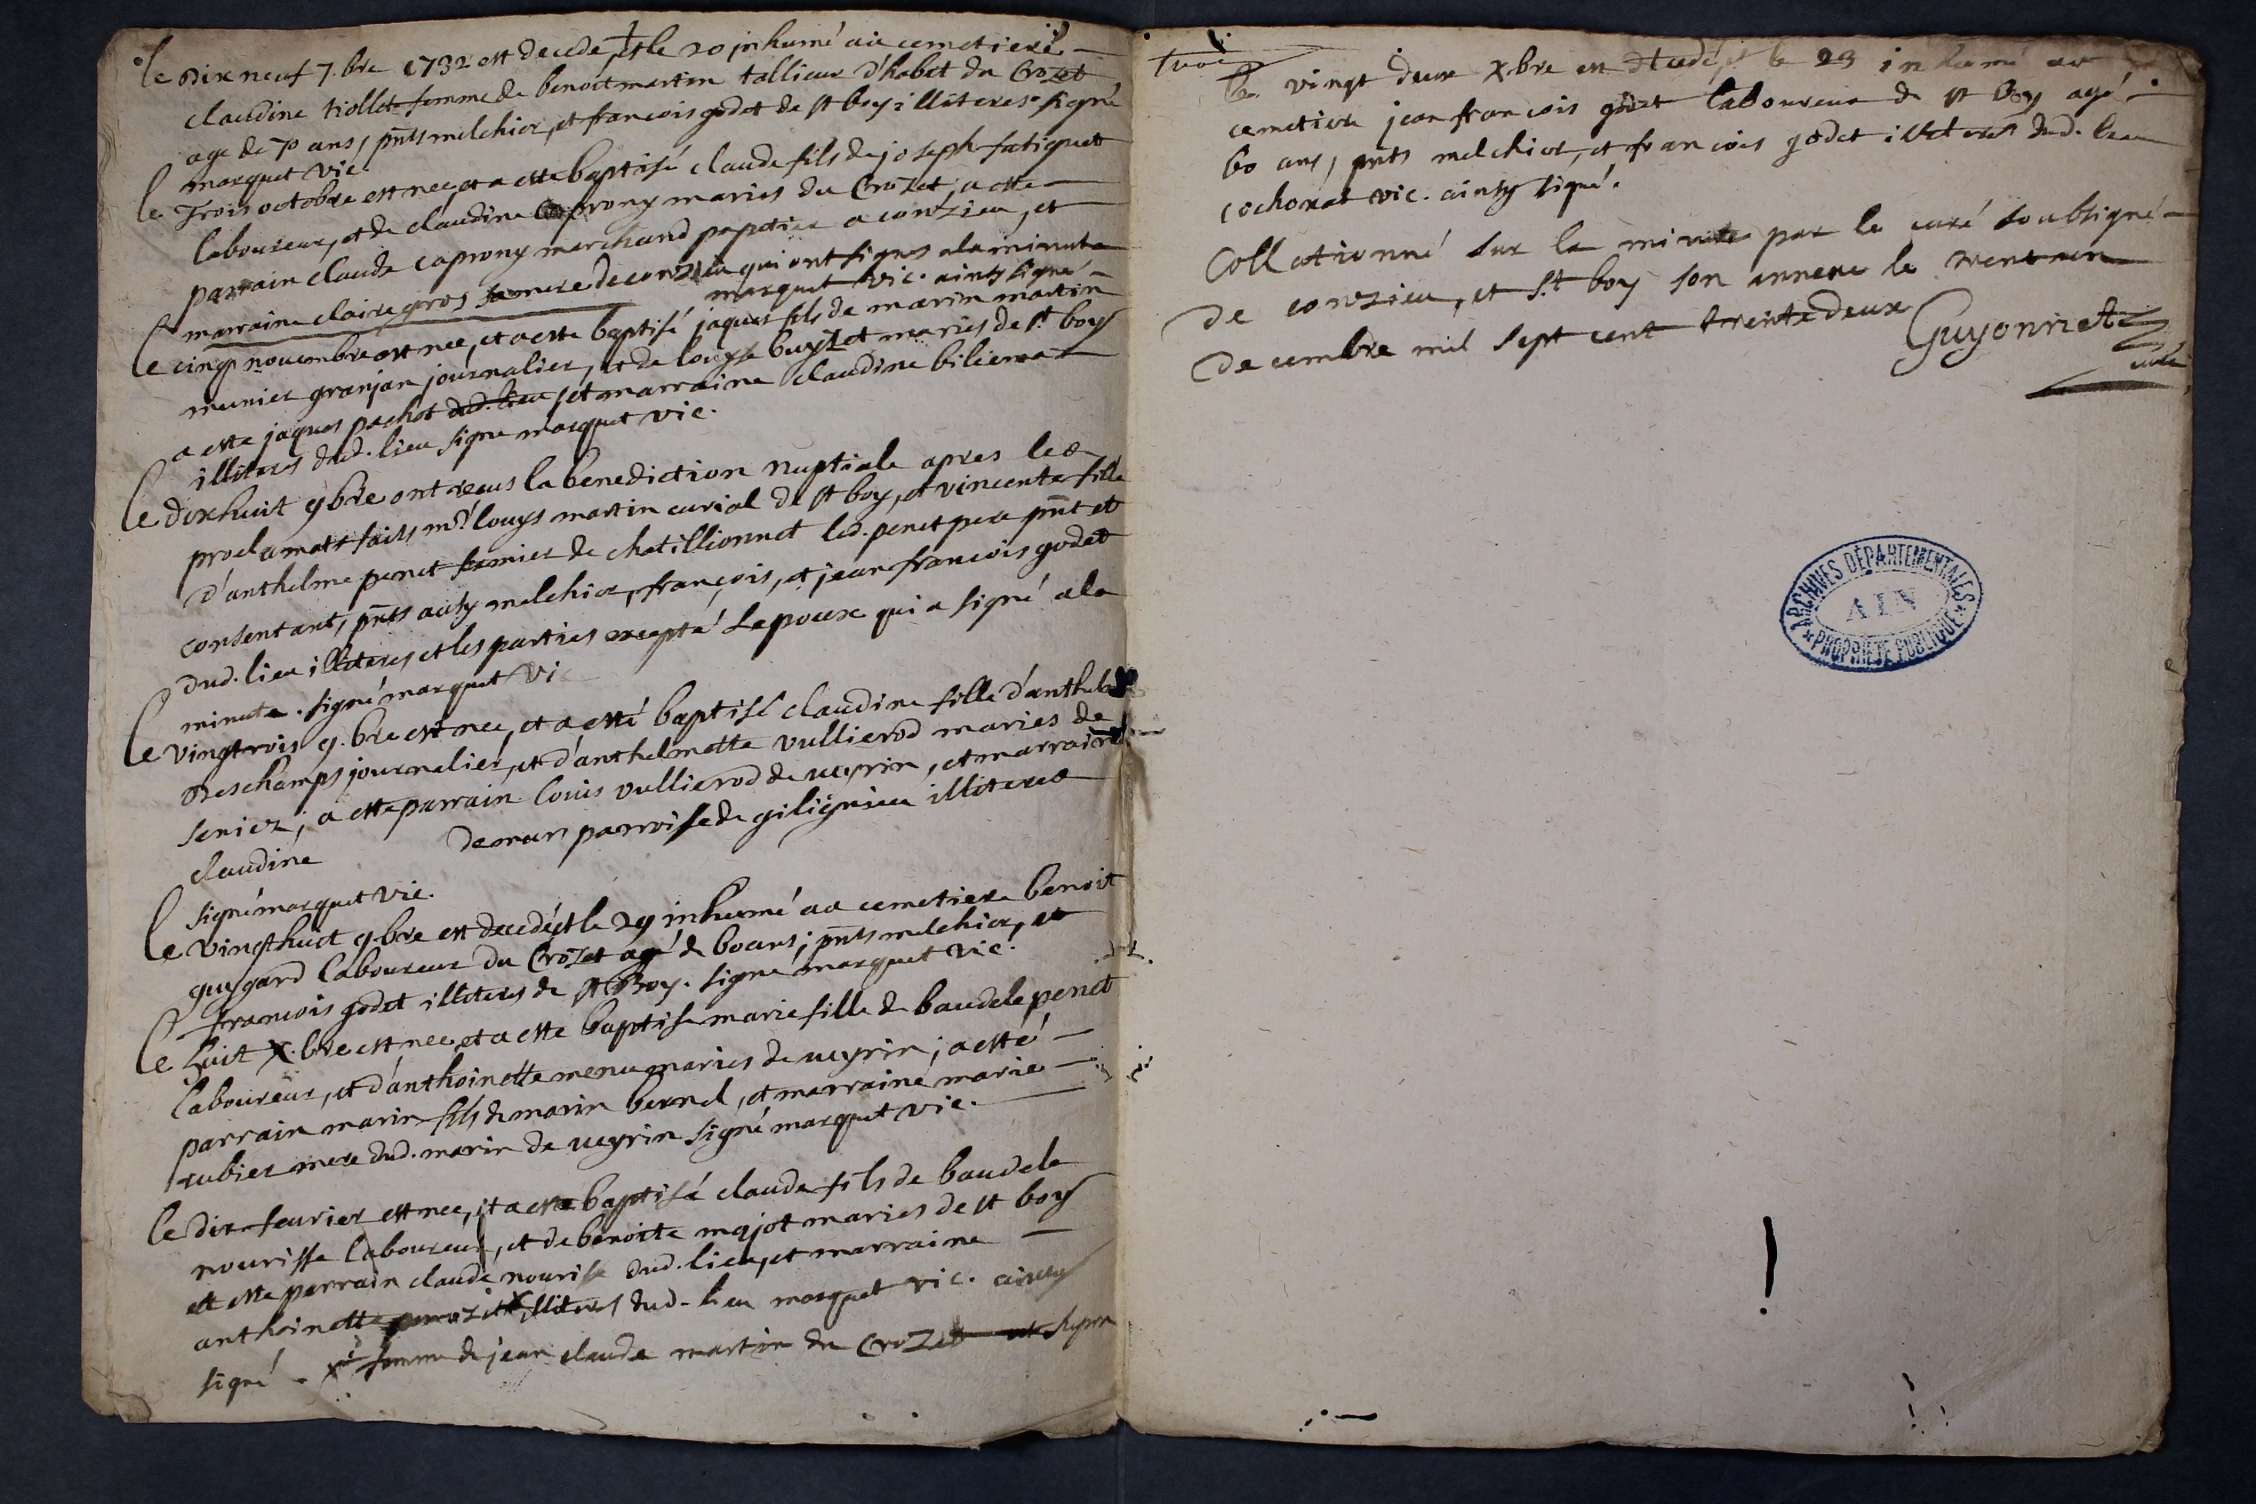 le dix neuf 7.bre 1732 est decede, et le 20 inhumé au cemetiere
claudine tiollet femme de benoit martin tallieur d'habet du Crozet
age de 70 ans, pnts melchior, et francois godet de st boy illiteres signé
marquet vic.
le Trois octobre est nee, et a esté baptisé claude fils de joseph fatiguet
laboureur, et de claudine caprony maries du Crozet, a esté
parrain claude caprony marchand papetier a conzieu, et
marraine claire gros sa mere de conzieu qui ont signes a la minute
marquet vic. ainsy signé
le cinq novembre est nee, et a esté baptisé jaques fils de marin martin
munier granjan journalier, et de louyse buyzet maries de st boy
a esté jaques pachot dud. lieu, et marraine claudine biliema
illiteres dud. lieu signe marquet vic.
le dix huit 9bre ont receus la benediction nuptiale apres les
proclamats faits mre louys martin curial de st boy, et vincente fille
d'anthelme penet fermier de chatillionnet led. penet pere pnt et
consentant, pnts aussy melchior, françois, et jean francois godet
dud. lieu illiteres et les parties excepté l'epoux qui a signé a la
minute. signé marquet vic
le vingt trois 9.bre est nee, et a esté baptisé claudine fille d'anthelme
deschamps journalier, et d'anthelmette vullierod maries de
seniez; a esté parrain louis vullierod de veyrin, et marraine
claudine demars parroisse de gilignieu illiteres
signé marquet vic.
le vingt huit 9.bre est decedé, et le 29 inhumé au cemetiere benoit
guygard laboureur du Crozet agé de 60 ans; pnts melchior, et
francois godet illiteres de st Boy. signé marquet vic.
le huit X.bre est nee, et a esté baptisé marie fille de baudele penet
laboureur, et d'anthoinette menu maries de veyrin; a esté
parrain marin fils de marin bernel, et marraine marie
cubier mere dud. marin de veyrin signé marquet vic.
le dix feurier est nee, et a esté baptisé claude fils de baudele
nourisse laboureur, et de benoite majot maries de st boy
et esté parrain claude nourisse dud. lieu, et marraine
anthoinette illiteres dud. lieu marquet vic. ainsy
signé. femme de jean claude martin du Crozet
le vingt deux X.bre est decedé, et le 23 inhumé au
cemetiere jean francois godet laboureur de st boy agé
60 ans, pnts melchior, et francois godet illiteres dud. lieu
cochonat vic. ainsy signé.
Collationné sur la minute par le curé soubsigné
de conzieu, et St boy son annexe le trente un
decembre mil sept cent trente deux
Guyonnet
curé
ARCHIVES DÉPARTEMENTALES
AIN
PROPRIÉTÉ PUBLIQUE